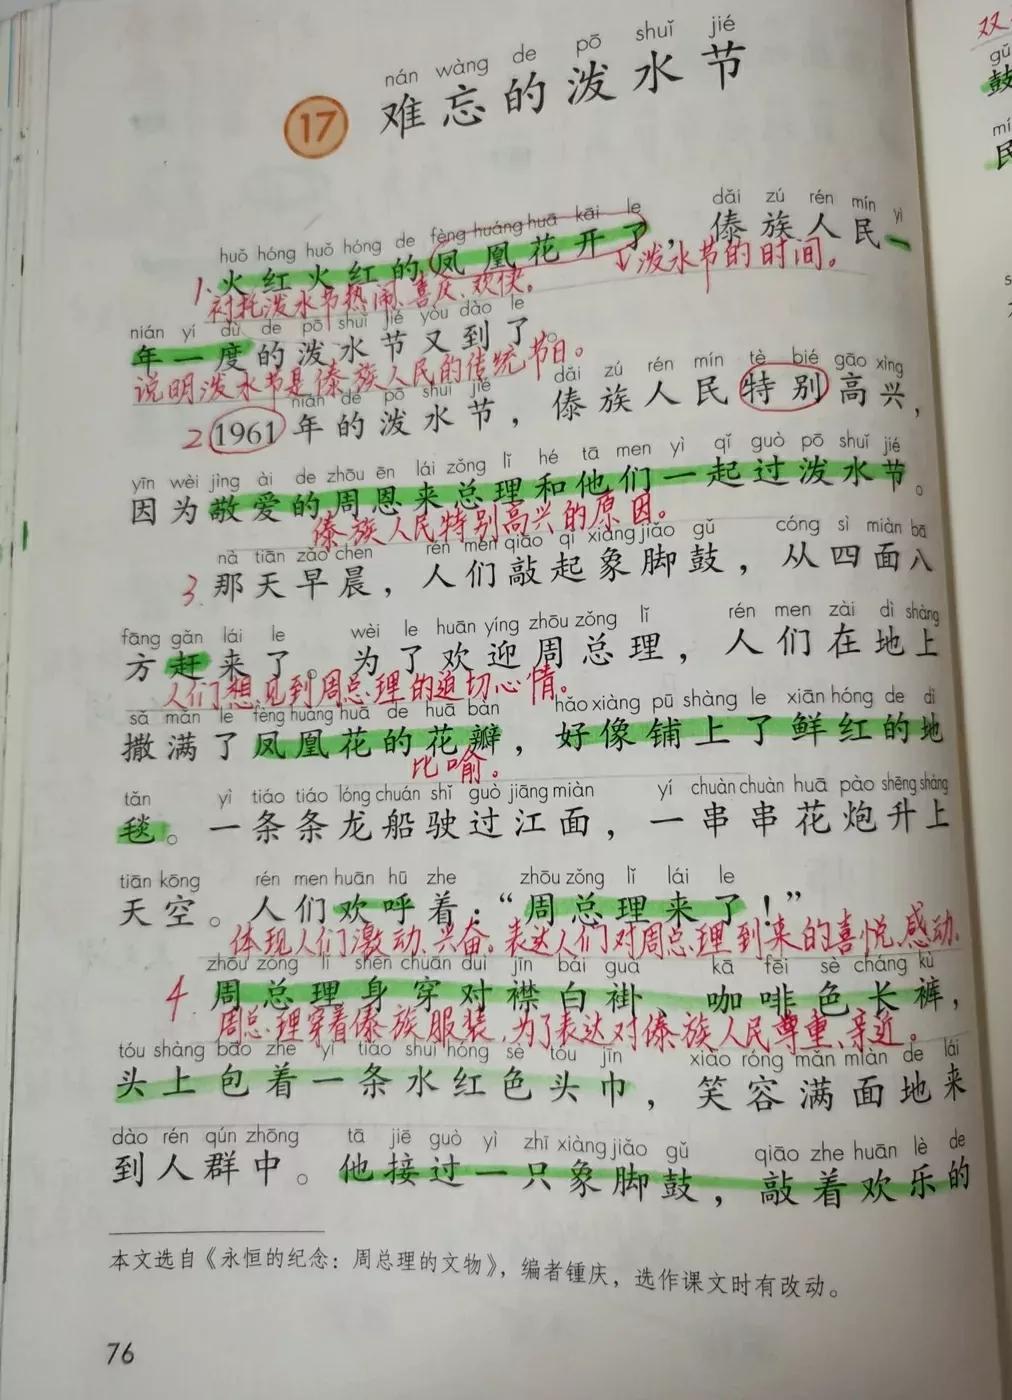 nán wàng de pō shuǐ jié
17 难忘的泼水节
huǒ hóng huǒ hóng de fèng huáng huā kāi le dǎi zú rén mín yì
1、火红火红的凤凰花开了，傣族人民一
衬托泼水节热闹、喜庆、欢快。 泼水节的时间。
nián yí dù de pō shuǐ jié yòu dào le
年一度的泼水节又到了。
说明泼水节是傣族人民的传统节日。
nián de pō shuǐ jié dǎi zú rén mín tè bié gāo xìng
2 1961年的泼水节，傣族人民特别高兴，
yīn wèi jìng ài de zhōu ēn lái zǒng lǐ hé tā men yì qǐ guò pō shuǐ jié
因为敬爱的周恩来总理和他们一起过泼水节。
傣族人民特别高兴的原因。
nà tiān zǎo chen rén men qiāo qǐ xiàng jiǎo gǔ cóng sì miàn bā
3. 那天早晨，人们敲起象脚鼓，从四面八
fāng gǎn lái le wèi le huān yíng zhōu zǒng lǐ rén men zài dì shàng
方赶来了。为了欢迎周总理，人们在地上
人们想见到周总理的迫切心情。
sǎ mǎn le fèng huáng huā de huā bàn hǎo xiàng pū shàng le xiān hóng de dì
撒满了凤凰花的花瓣，好像铺上了鲜红的地
比喻。
tǎn yì tiáo tiáo lóng chuán shǐ guò jiāng miàn yí chuàn chuàn huā pào shēng shàng
毯。一条条龙船驶过江面，一串串花炮升上
tiān kōng rén men huān hū zhe zhōu zǒng lǐ lái le
天空。人们欢呼着：“周总理来了！”
体现人们激动、兴奋。表达人们对周总理到来的喜悦、感动。
zhōu zǒng lǐ shēn chuān duì jīn bái guà kā fēi sè cháng kù
4 周总理身穿对襟白褂、咖啡色长裤，
周总理穿着傣族服装，为了表达对傣族人民尊重、亲近。
tóu shàng bāo zhe yì tiáo shuǐ hóng sè tóu jīn xiào róng mǎn miàn de lái
头上包着一条水红色头巾，笑容满面地来
dào rén qún zhōng tā jiē guò yì zhī xiàng jiǎo gǔ qiāo zhe huān lè de
到人群中。他接过一只象脚鼓，敲着欢乐的
本文选自《永恒的纪念：周总理的文物》，编者锺庆，选作课文时有改动。
76